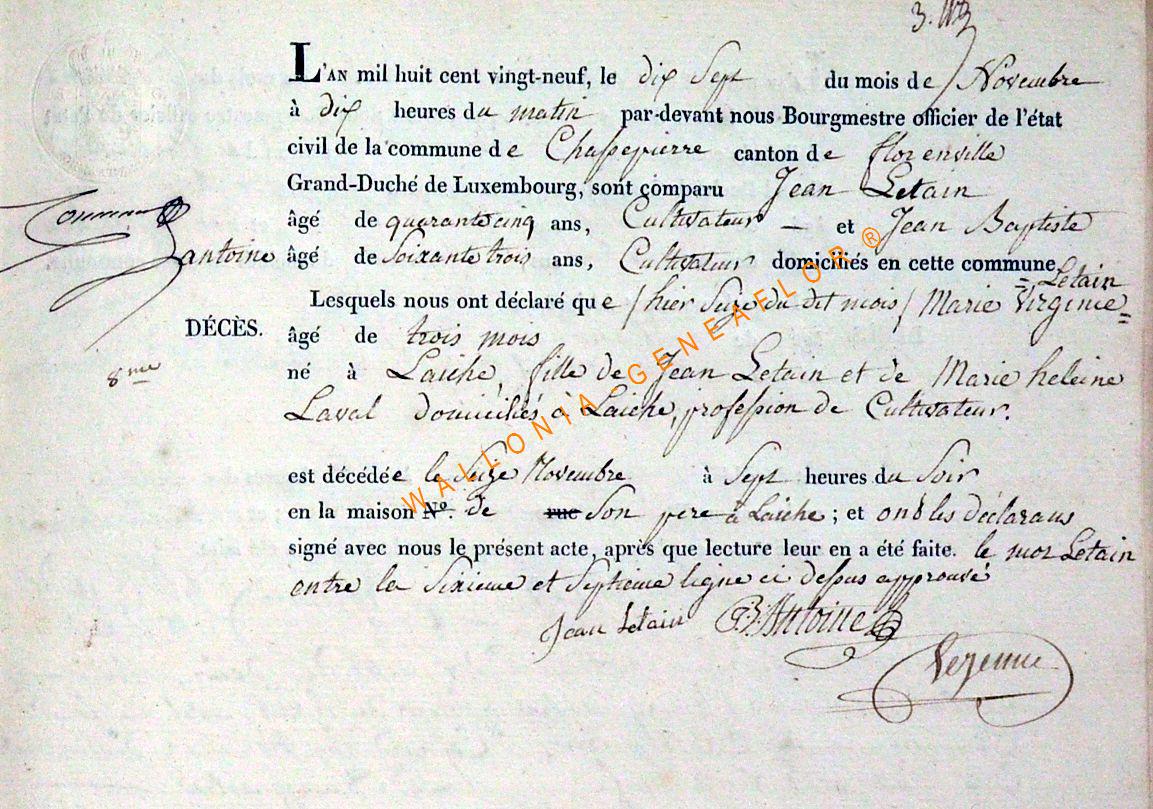 L'AN mil huit cent vingt-neuf, le dix Sept du mois de Novembre
à dix heures du matin par-devant nous Bourgmestre officier de l'état
civil de la commune de Chassepierre canton de florenville
Grand-Duché de Luxembourg, sont comparu Jean Letain
âgé de quarante cinq ans, Cultivateur — et Jean Baptiste
antoine âgé de Soixante trois ans, Cultivateur domiciliés en cette commune
Letain
Lesquels nous ont déclaré que / hier Seize du dit mois / Marie Virginie =
DÉCÈS.
âgé de trois mois
8me
né à Laiche, fille de Jean Letain et de Marie heleine
Laval domiciliés à Laiche, profession de Cultivateur.
est décédée le Seize Novembre à Sept heures du Soir
en la maison No. de rue Son pere à Laiche ; et ont les déclarans
signé avec nous le présent acte, après que lecture leur en a été faite. le mot Letain
entre la Sixieme et Septieme ligne ci dessus approuvé
Jean Letain JB. Antoine
WALLONIA-GENEAFLOR®